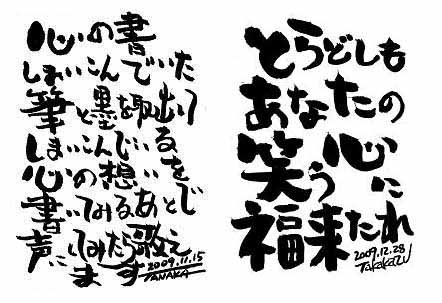 心の書
しまいこんでいた
筆と墨を取出して
しまいこんでいる
心の想いを
書いてみるあとで
声にしてみたら歌え
ます
2009.11.15
TANAKA
とらどしも
あなたの
笑う心に
福来たれ
2009.12.28
Takakazu